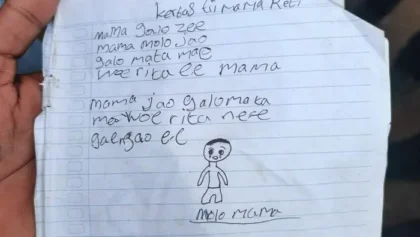 kertas tu mama Reti
mama galo zee
mama molo jao
galo mata mae
woe rita ee mama
mama jao galo mata
woe rita nefe
ee
molo mama